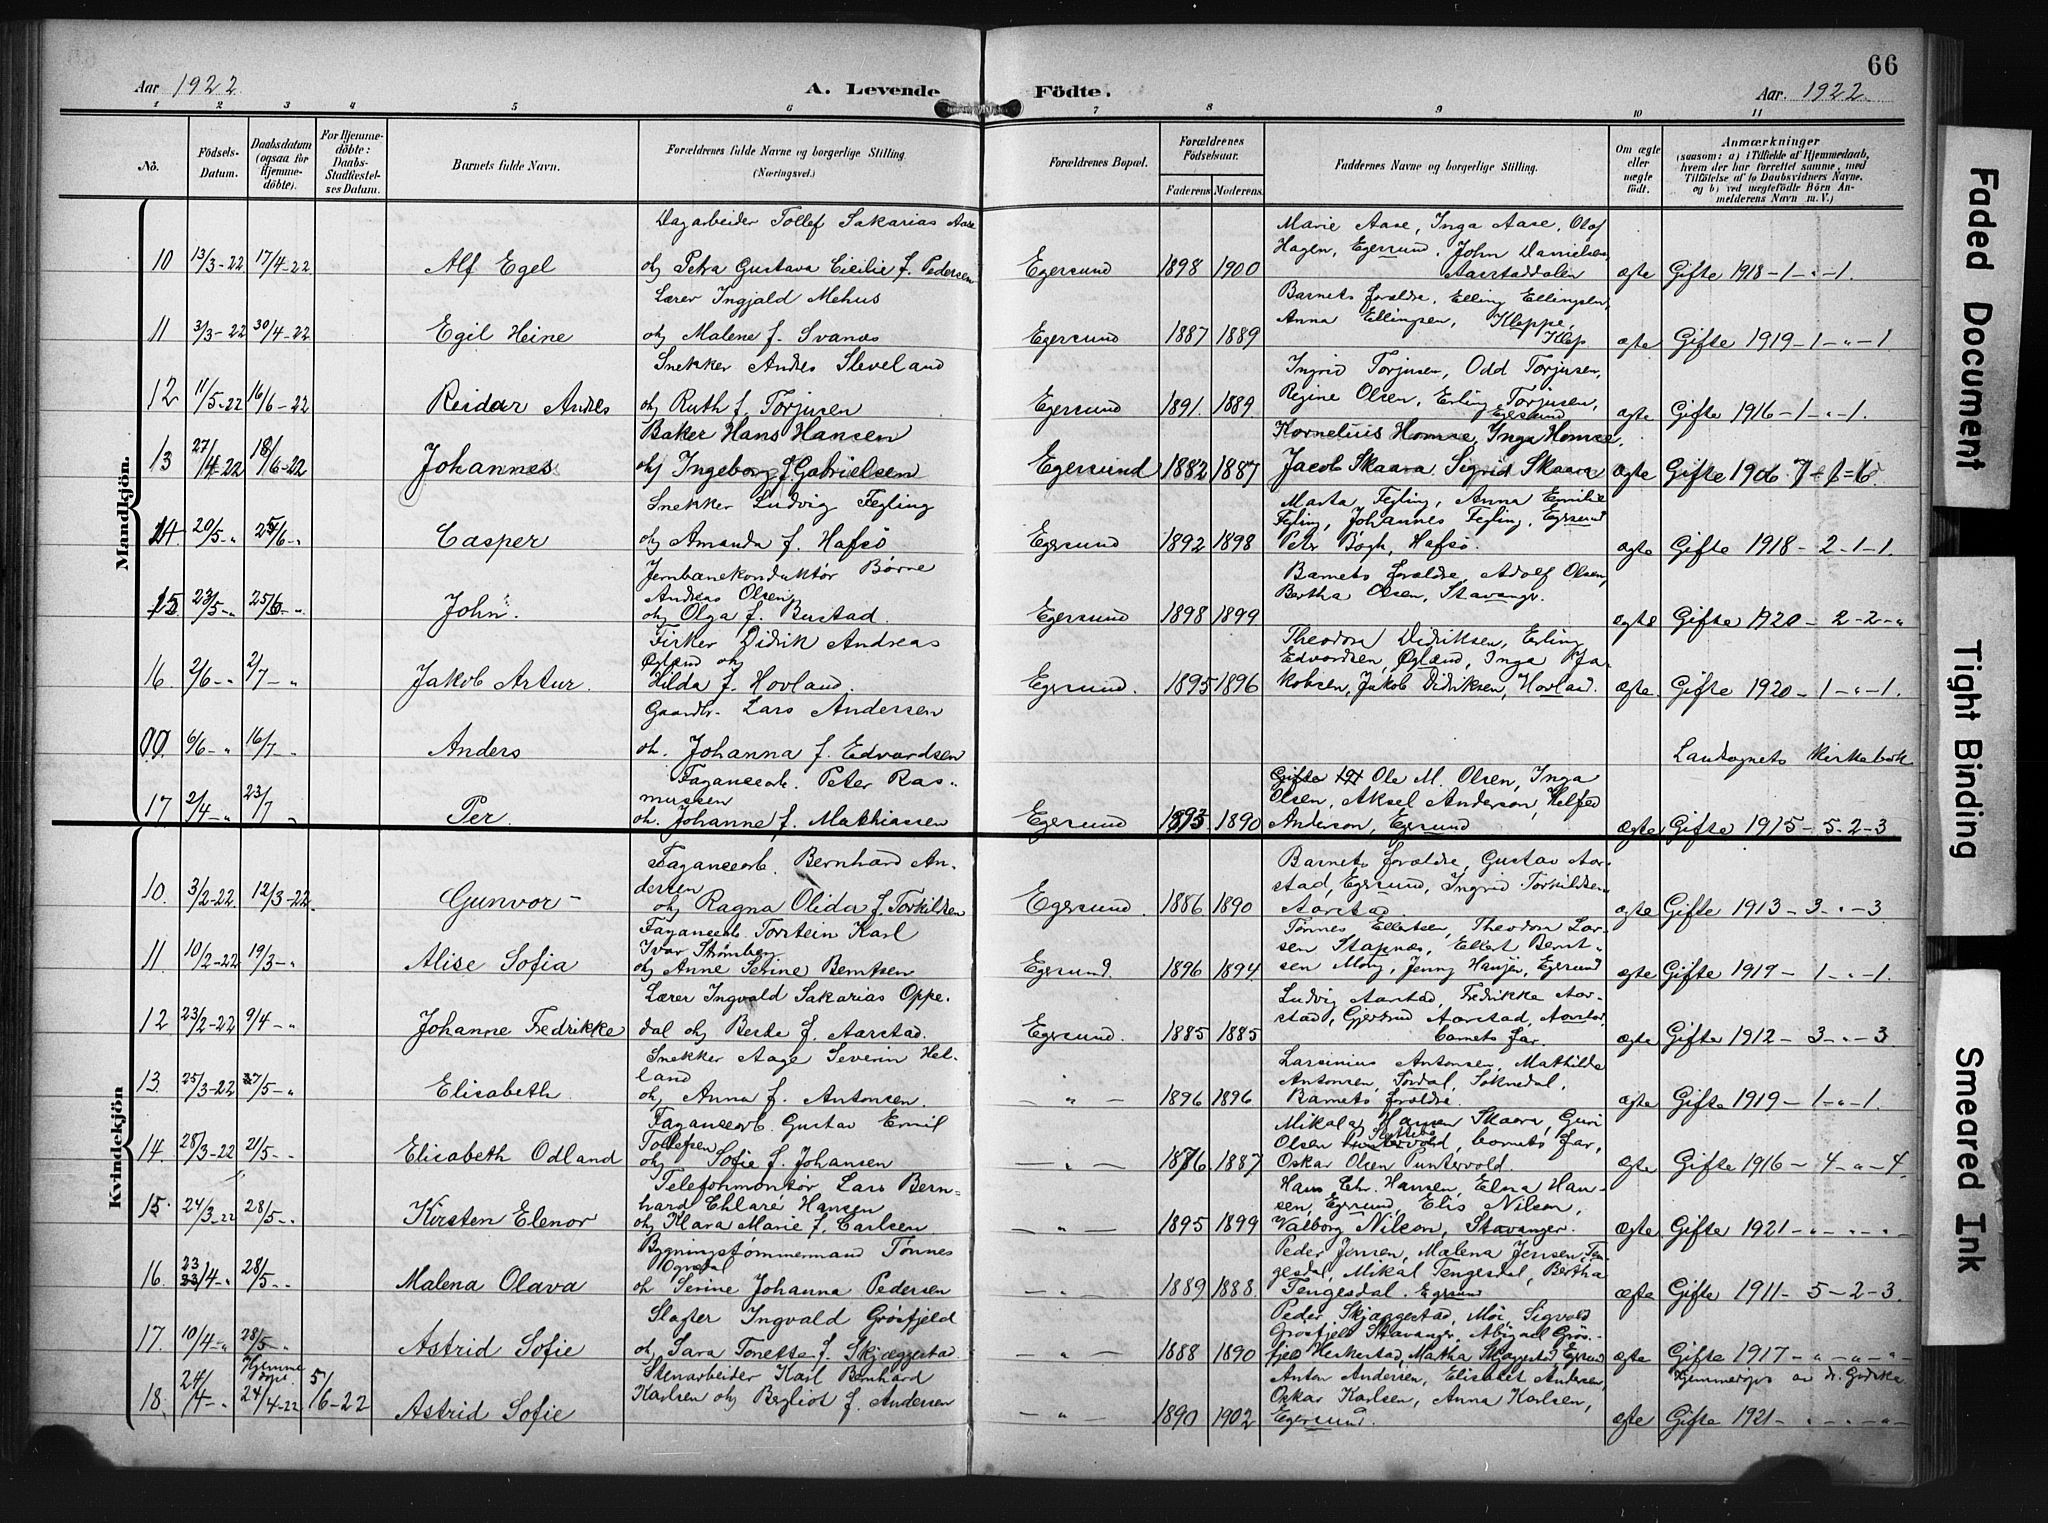 66
Aar 1922
A. Levende Födte.
Aar. 1922.
1 2 3 4 5 6 7 8 9 10 11
No.
Födsels-Datum.
Daabsdatum (ogsaa for Hjemmedöbte).
For Hjemmedöbte: Daabs-Stadfæstelses Datum.
Barnets fulde Navn.
Forældrenes fulde Navne og borgerlige Stilling. (Næringsvei.)
Forældrenes Bopæl.
Forældrenes Födselsaar.
Faderens Moderens.
Faddernes Navne og borgerlige Stilling.
Om ægte eller uægte födt.
Anmærkninger
(saasom: a) i Tilfælde af Hjemmedaab, hvem der har forrettet samme, med Tilföielse af to Daabsvidners Navne, og b) ved uægtefödte Börn Anmelderens Navn m. V.)
Mandkjön.
Dagarbeider Tollef Sakarias Aase
Marie Aase, Inga Aase, Olaf
Hagen, Egersund, John Danielsen,
10 13/3-22 17/4-22 Alf Egel og Petra Gustava Cicilie f. Pedersen Egersund 1898 1900 Aarstaddalen ægte Gifte 1918-1-"-1.
Lærer Ingjald Mehus
Barnets forældre, Elling Ellingsen,
Anna Ellingsen, Kleppe,
11 3/3-22 30/4-22 Egil Heine og Malene f. Svanæs Egersund 1887 1889 Klep ægte Gifte 1919-1-"-1.
Snekker Andrs Sleveland
Ingrid Torjusen, Odd Torjusen,
Regine Olsen, Erling Torjusen,
12 11/5-22 16/6-22 Reidar Andrs og Ruth f. Torjusen Egersund 1891. 1889 Egersund ægte Gifte 1916-1-"-1.
Baker Hans Hansen
Kornelius Homse, Ynga Homse.
13 27/4-22 18/6-22 Johannes og Ingeborg f. Gabrielsen Egersund 1882 1887 Jacob Skaara, Sigrid Skaara ægte Gifte 1906
Snekker Ludvig Fejling
Marta Fejling, Anna Emilie
Fejling, Johannes Fejling, Egersund
14. 20/5-" 25/6-" Casper og Amanda f. Hafsö Egersund 1892 1898 Peter Bögh, Hafsö. ægte Gifte 1918-2-1-1.
Jernbanekonduktör Börre
Andreas Olsen
Barnets forældre, Adolf Olsen,
Bertha Olsen, Stavanger.
15 23/5-" 25/6-" John. og Olga f. Bustad. Egersund 1898 1899 ægte Gifte 1920-2-2-"
Fisker Didrik Andreas
Øgland og
Theodora Didriksen, Erling
Edvardsen, Øgland, Inga Ja-
16. 2/6-" 2/7-" Jakob Artur. Hilda f. Hovland. Egersund. 1895 1896 kobsen, Jakob Didriksen, Hovland. ægte. Gifte 1920-1-"-1.
Gaardbr. Lars Andersen
6/6-" 16/7-" Anders og. Johanna f. Edvardsen Landsognets kirkebok
Fajancearb. Peter Ras-
mussen
Ole M. Olsen, Inga
Olsen, Aksel Anderson, Helfred
17 2/4-" 23/7 " Per. og. Johanne f. Mathiassen Egersund 1893. 1890 Anderson, Egersund ægte Gifte 1915-5-2-3
Kvindekjön
Fajancearb. Bernhard An-
dersen
Barnets forældre, Gustav Aar-
stad, Egersund, Ingrid Torkildsen
10. 3/2-22 12/3-22. Gunvor og Ragna Olida f. Torkildsen Egersund. 1886 1890 Aarstad. ægte Gifte 1913-3-"-3
Fajancearb. Torstein Karl
Ivar Strömberg
Tönnes Elletsen, Theodora Lar-
sen Stapnæs, Ellet Bernt-
11. 10/2-22 19/3-" Alise Sofia og Anne Serine Berntsen Egersund. 1896 1894. sen Mong, Jenny Hansen, Egersund ægte Gifte 1919-1-"-1.
Lærer Ingvald Sakarias Oppe-
Ludvig Aarstad, Fredrikke Aar-
stad, Gjertrud Aarstad, Aarstad,
12 23/2-22 9/4-" Johanne Fredrikke dal og Berte f. Aarstad. Egersund. 1885 1885 barnets far. ægte Gifte 1912-3-"-3
Snekker Aage Severin Hel-
land
Larsinius Antonsen, Mathilde
Antonsen, Sördal, Soknedal,
13. 25/3-22 27/5-" Elisabeth. og Anna f. Antonsen. — " — 1896 1896 Barnets forældre. ægte Gifte 1919-1-"-1.
Fajancearb. Gustav Emil
Tollefsen
Mikala Hansen Skaara, Guri
Olsen barnets far,
14. 28/3-22 21/5-" Elisabeth Odland og Sofie f. Johansen — " — 1876 1887 Oskar Olsen Puntervold. ægte Gifte 1916-4-"-4.
Telefonmontör Lars Bern-
hard Chlaré Hansen
Hans Chr. Hansen, Elna Han-
sen, Egersund, Elis Nilson,
15. 24/3-22 28/5-" Kirsten Elenor og Klara Marie f. Carlsen — " — 1895 1899 Valborg Nilson, Stavanger. ægte Gifte 1921-"-"-"-
Bygningstömmermand Tönnes
Ognedal
Peder Jensen, Malena Jensen, Ten-
gesdal, Mikal Tengesdal, Bertha
16. 23/4-" 28/5-" Malena Olava og Serine Johanna Pedersen — " — 1889 1888. Tengesdal. Egersund ægte Gifte 1911-5-2-3.
Slagter Ingvald Grösfjeld
Peder Skjæggestad, Moi, Sigvald
Grösfjeld Stavanger, Abigael Grös-
17. 10/4-" 28/5-" Astrid Sofie og Sara Tonette f. Skjæggestad. — " — 1888 1890 fjeld Heskestad, Martha Skjæggestad, Egersund ægte Gifte 1917-"-"-"-
Hjemme
döpt
Stenarbeider Karl Bernhard
Anton Andersen, Elisabet Andersen,
Hjemmedöpt av dr.
18. 24/4-" 24/4-22 5/6-22 Astrid Sofie Karlsen og Bergliot f. Andersen — " — 1890 1902 Oskar Karlsen, Anna Karlsen,
Egersund. ægte Gifte 1921-"-"-"-
Faded Document
Tight Binding
Smeared Ink